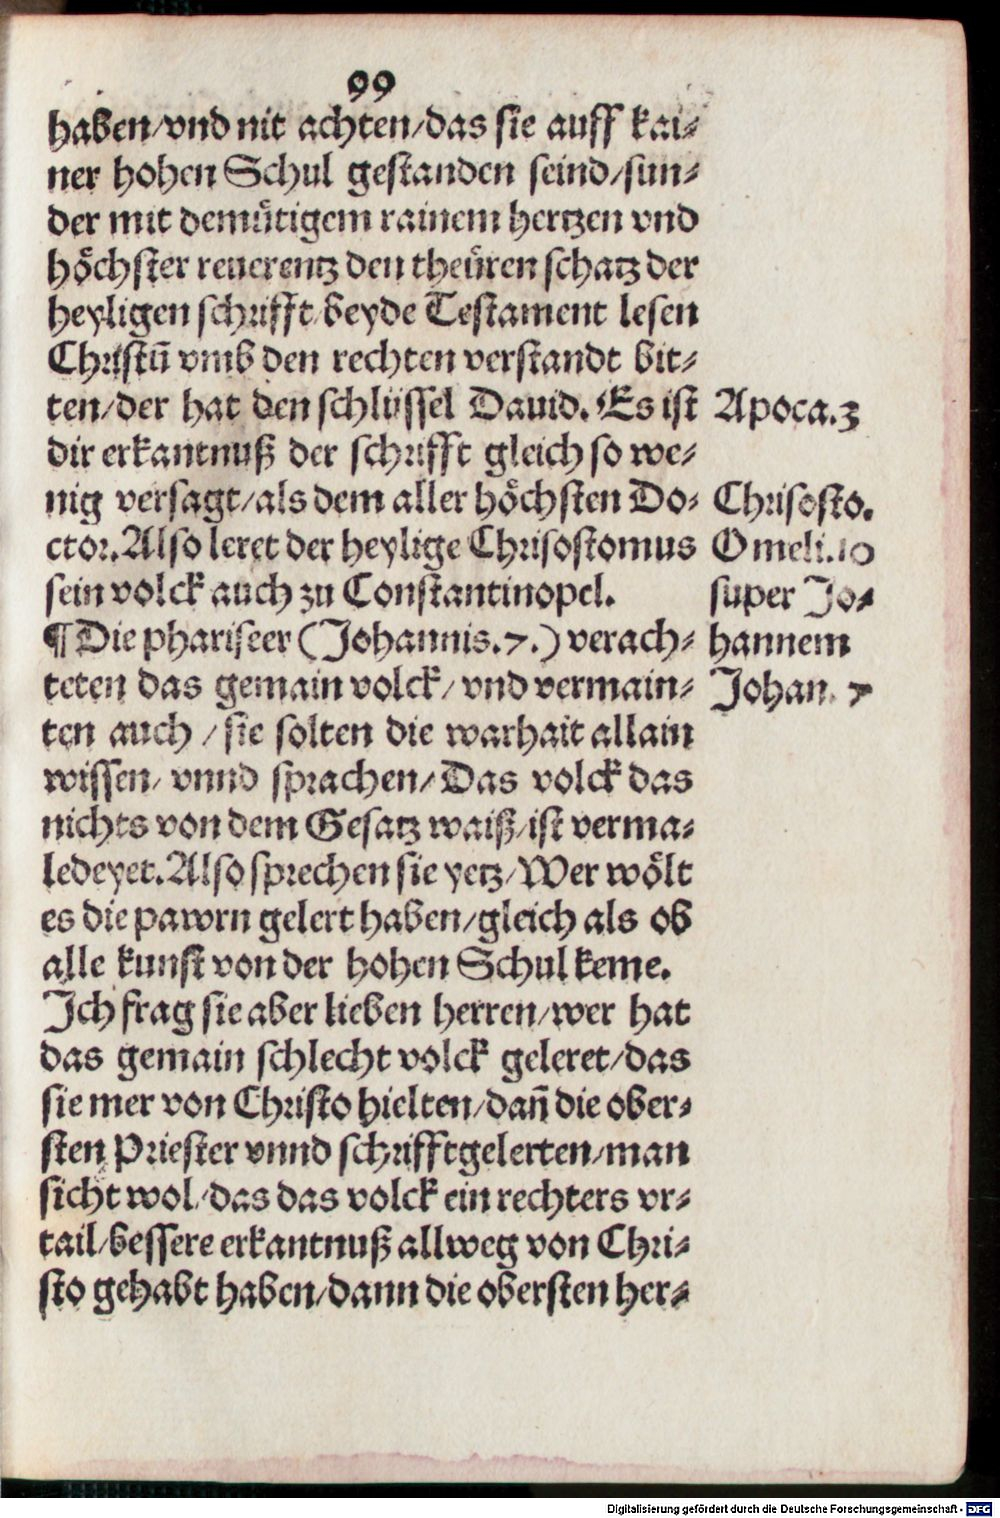 99
haben/vnd nit achten/das sie auff kai-
ner hohen Schul gestanden seind/sun-
der mit demütigem rainem hertzen vnd
höchster reuerentz den theüren schatz der
heyligen schrifft/beyde Testament lesen
Christū vmb den rechten verstandt bit-
ten/der hat den schlüssel Dauid. Es ist
Apoca.3
dir erkantnuß der schrifft gleich so we-
nig versagt/als dem aller höchsten Do-
Chrisosto.
ctor. Also leret der heylige Chrisostomus
Omeli.10
sein volck auch zu Constantinopel.
super Jo-
¶ Die phariseer (Johannis.7.) verach-
hannem
teten das gemain volck/vnd vermain-
Johan. 7
ten auch/sie solten die warhait allain
wissen/vnnd sprachen/Das volck das
nichts von dem Gesatz waiß/ist verma-
ledeyet. Also sprechen sie yetz/Wer wölt
es die pawrn gelert haben/gleich als ob
alle kunst von der hohen Schul keme.
Ich frag sie aber lieben herren/wer hat
das gemain schlecht volck geleret/das
sie mer von Christo hielten/dañ die ober-
sten Priester vnnd schrifftgelerten/man
sicht wol/das das volck ein rechters vr-
tail/bessere erkantnuß allweg von Chri-
sto gehabt haben/dann die obersten her-
Digitalisierung gefördert durch die Deutsche Forschungsgemeinschaft - DFG